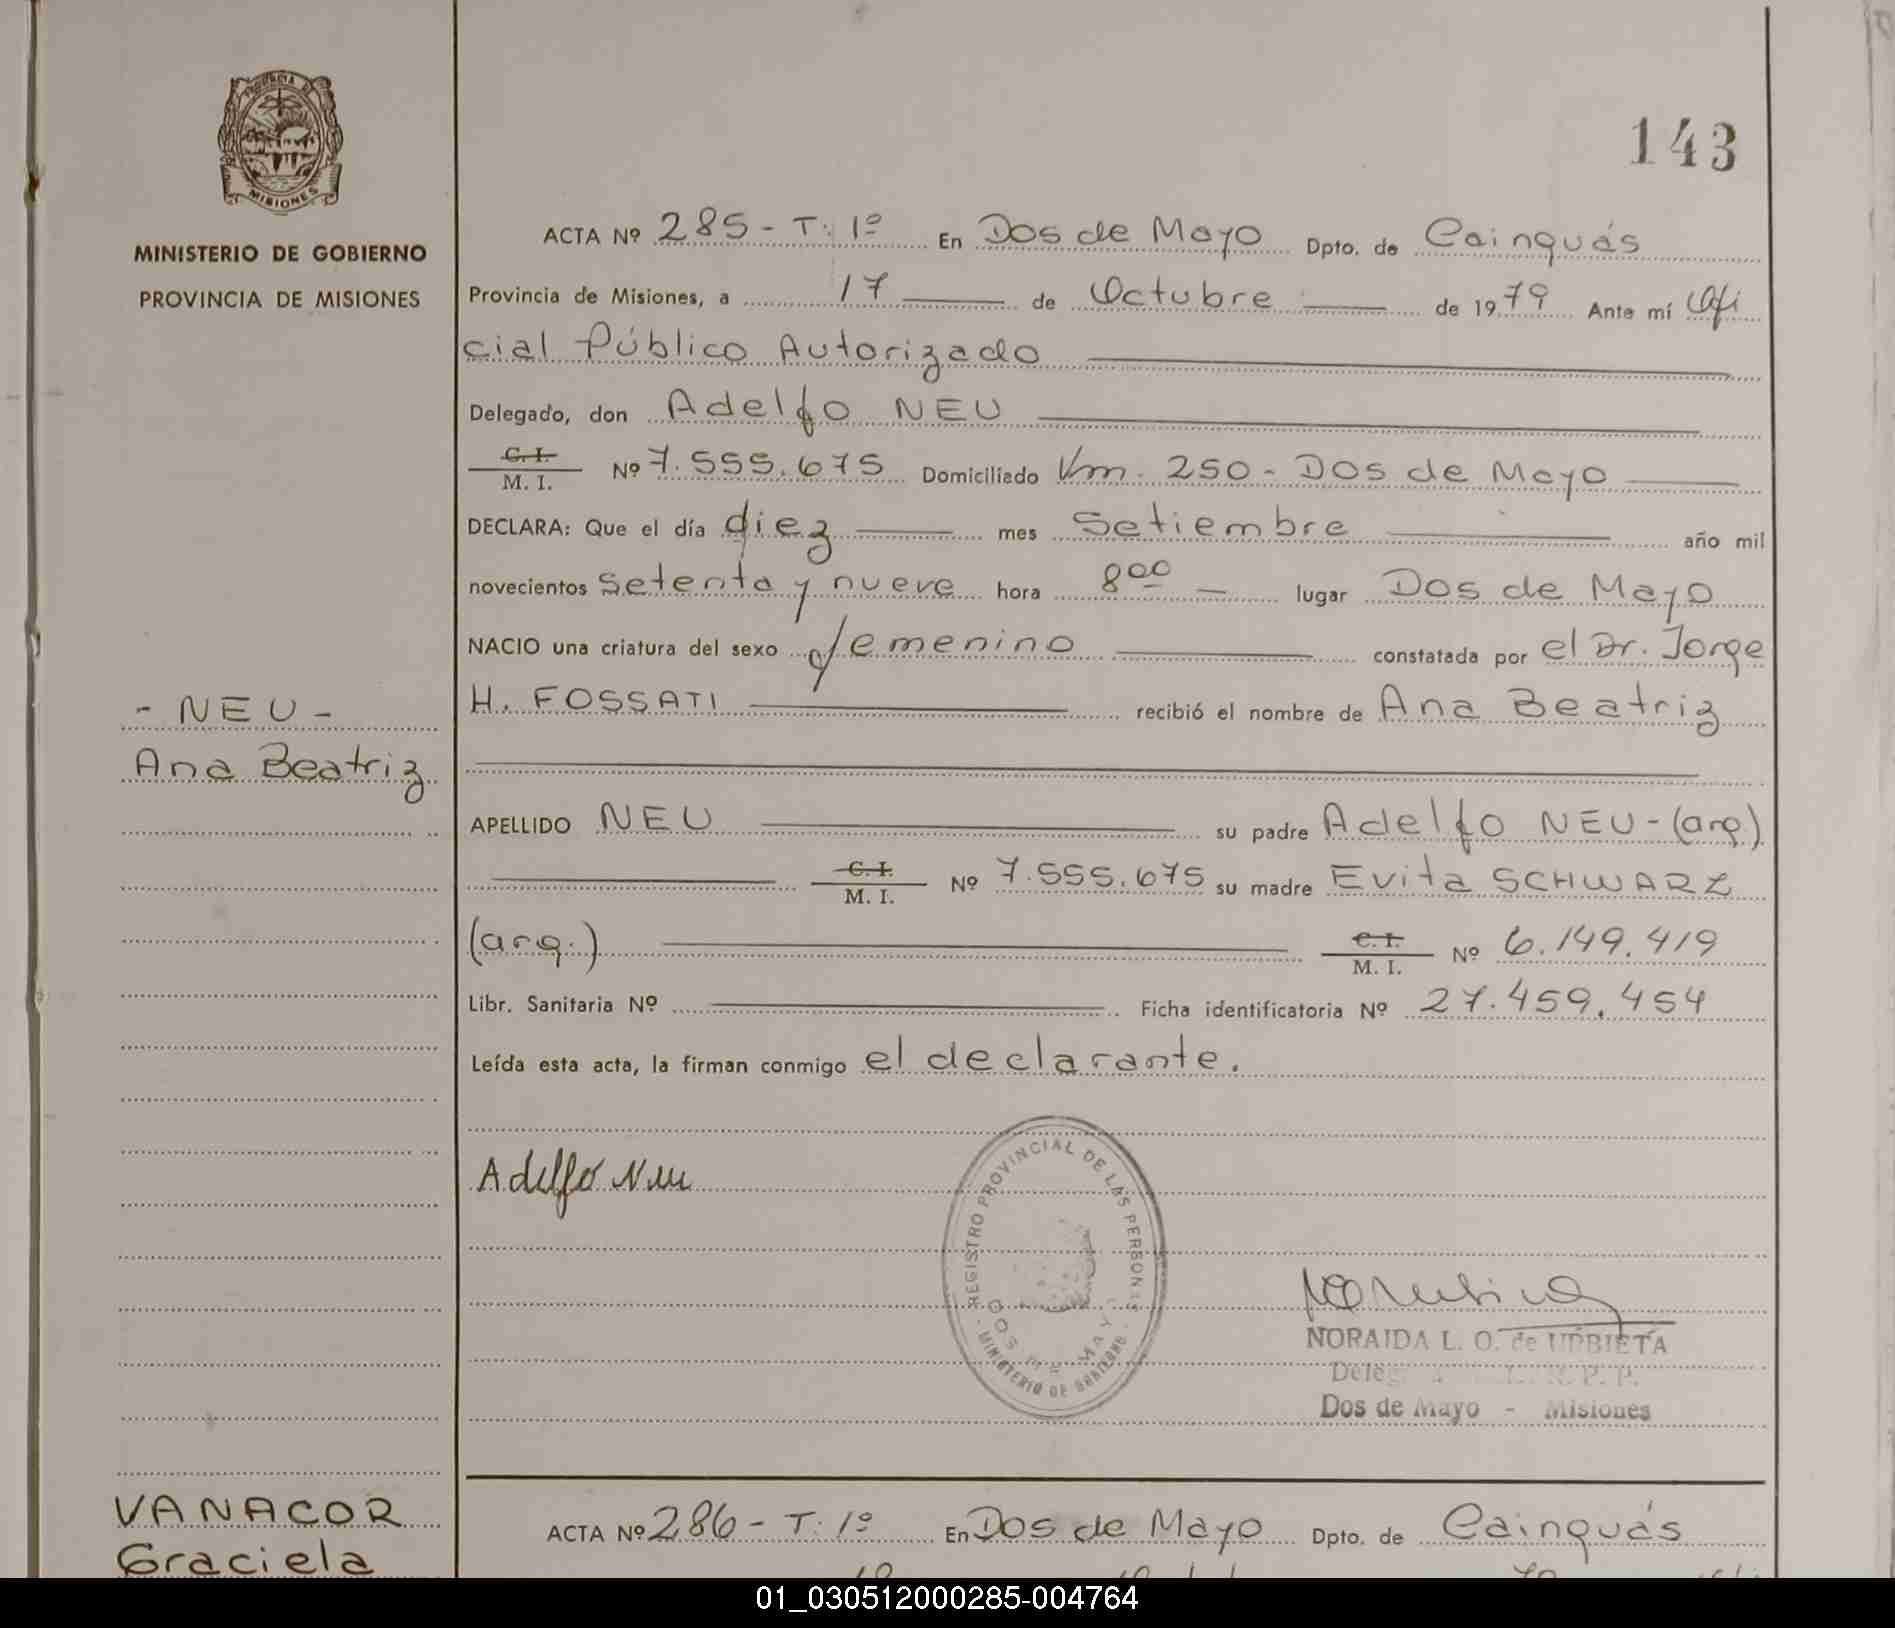 PROVINCIA DE
MISIONES
MINISTERIO DE GOBIERNO
PROVINCIA DE MISIONES
143
ACTA Nº 285 - T: 1º En Dos de Mayo Dpto. de Cainguás
Provincia de Misiones, a 17 de Octubre de 1979 Ante mí Ofi
cial Público Autorizado
Delegado, don Adelfo NEU
C. I.
M. I. Nº 7.555.675 Domiciliado Km. 250 - Dos de Mayo
DECLARA: Que el día diez mes Setiembre año mil
novecientos setenta y nueve hora 8 00 lugar Dos de Mayo
NACIO una criatura del sexo femenino constatada por el Dr. Jorge
H. FOSSATI recibió el nombre de Ana Beatriz
- NEU -
Ana Beatriz
APELLIDO NEU su padre Adelfo NEU - (arg.)
C. I.
M. I. Nº 7.555.675 su madre Evita SCHWARZ
(arg.) C. I.
M. I. Nº 6.149.419
Libr. Sanitaria Nº Ficha identificatoria Nº 27.459.454
Leída esta acta, la firman conmigo el declarante.
Adelfo Neu
REGISTRO PROVINCIAL DE LAS PERSONAS
DOS DE MAYO
- MINISTERIO DE GOBIERNO -
NORAIDA L. O. de URBIETA
Dos de Mayo - Misiones
VANACOR
Graciela
ACTA Nº 286 - T: 1º En Dos de Mayo Dpto. de Cainguás
01_030512000285-004764